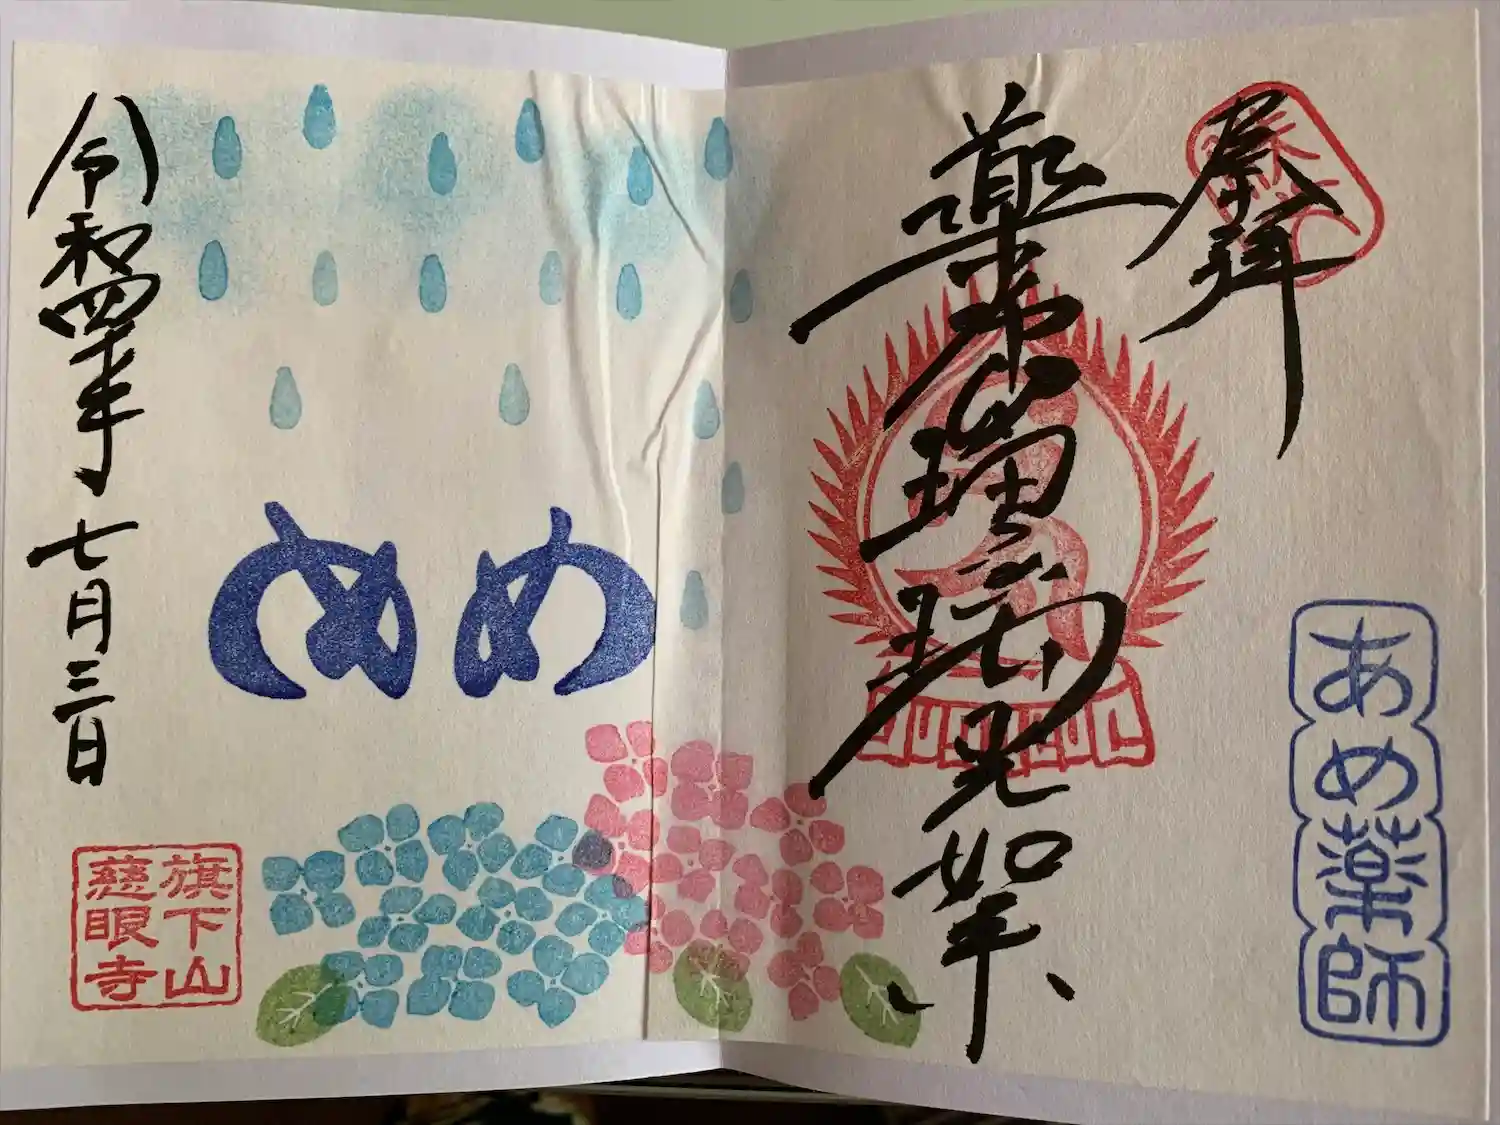 奉拝
薬師瑠璃光如来
あめ薬師
めめ
令和四年
七月三日
旗下山
慈眼寺